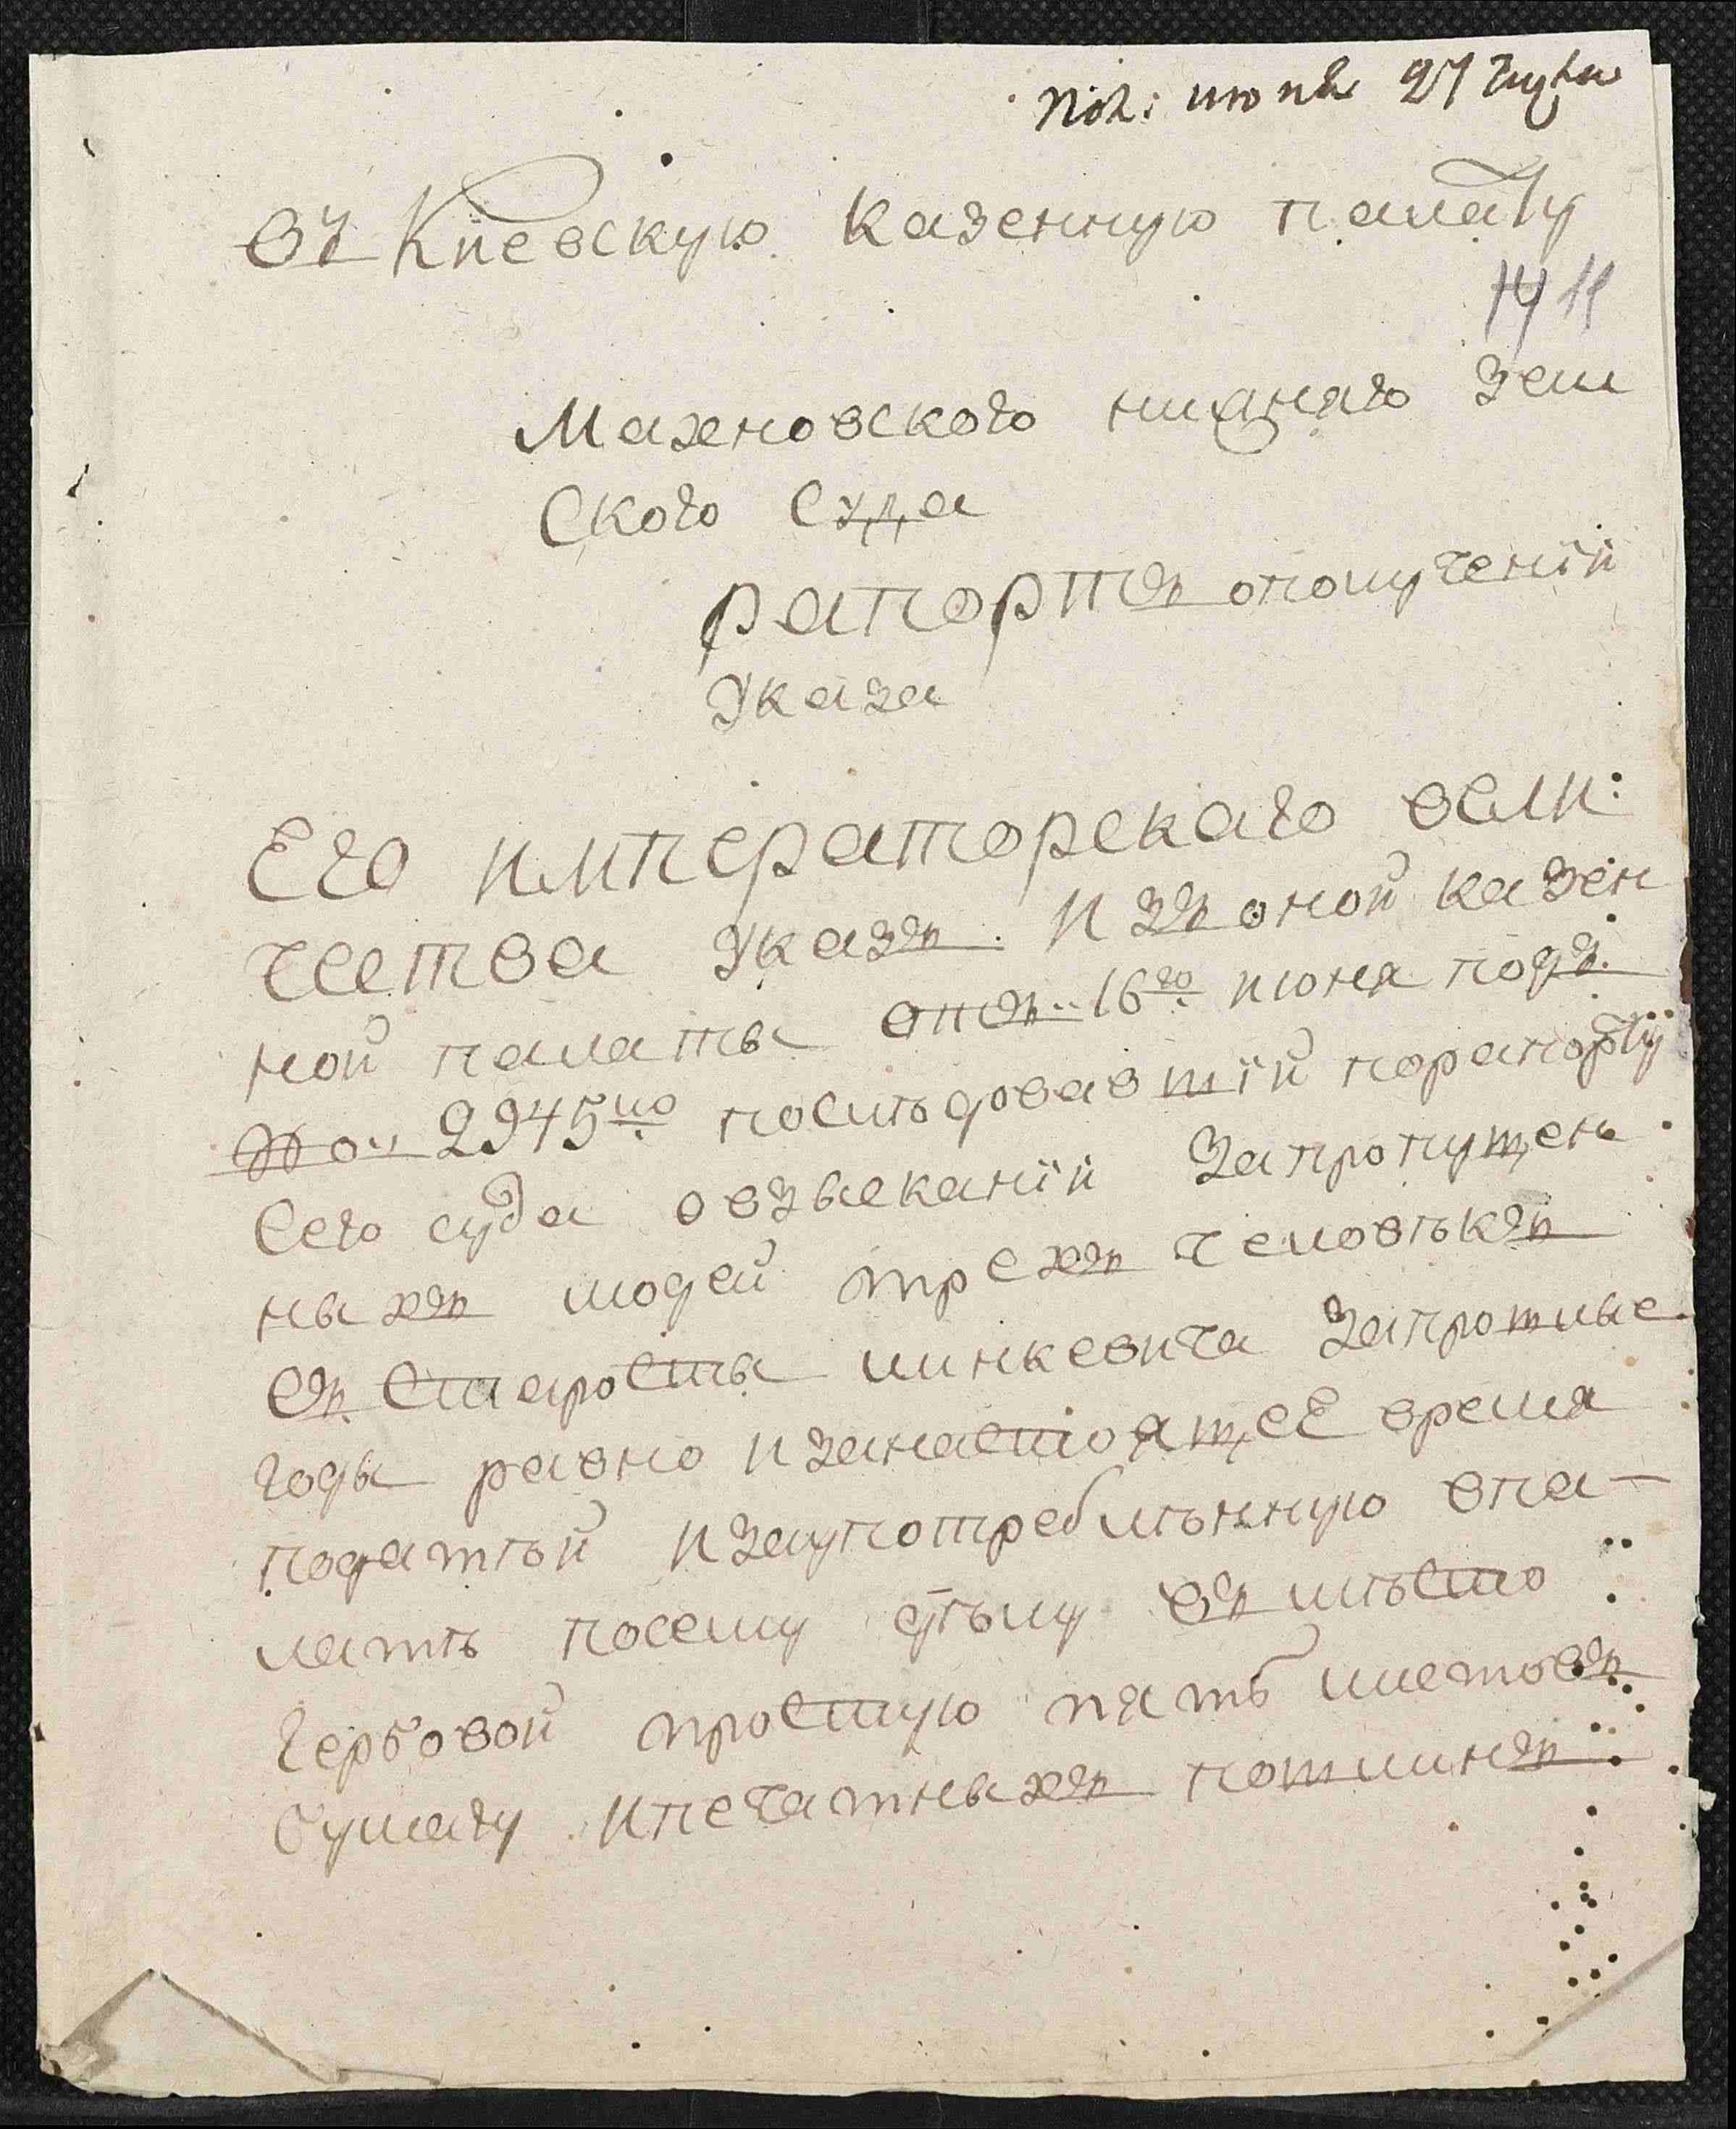 Пол: июня 27 1798 года
въ Киевскую казенную палату
14 11
Махновского нижняго зем
ского суда
рапортъ ополучении
указа
Его императорскаго вели:
чества указъ. изъ оной казен
ной палаты отъ 16го июня подъ
№о 2945мо последовавший порапорту
сего суда овзыскании запропущен
ныхъ людей трехъ человекъ
съ старосты линкевича запрошлые
годы равно изанастоящее время
податей изаупотребленную впа-
лать посему делу въ место
гербовой простую пять листовъ
бумагу ипечатныхъ пошлинъ